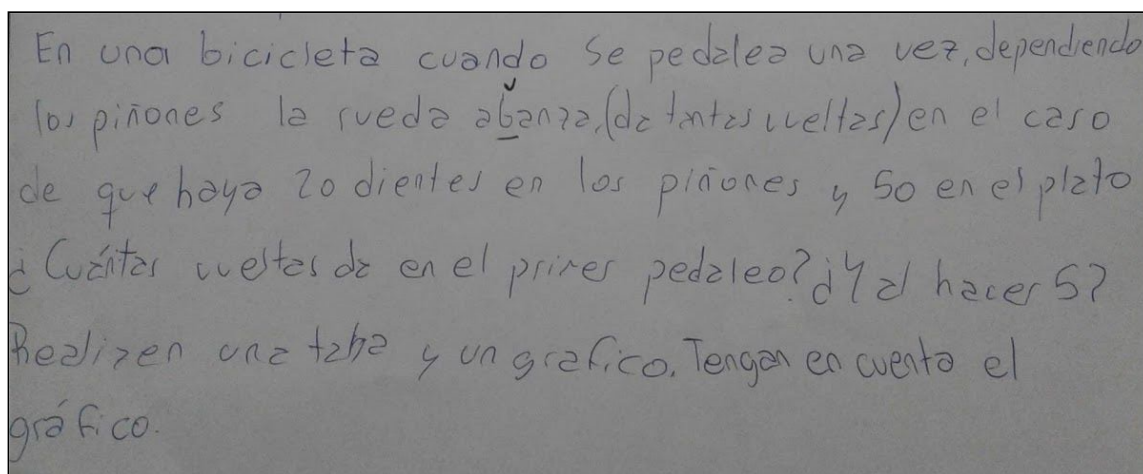 En una bicicleta cuando se pedalea una vez, dependiendo
los piñones la rueda abanza, (da tantas vueltas) en el caso
de que haya 20 dientes en los piñones y 50 en el plato
¿Cuántas vueltas da en el primer pedaleo? ¿Y al hacer 5?
Realizen una tabla y un grafico. Tengan en cuenta el
gráfico.